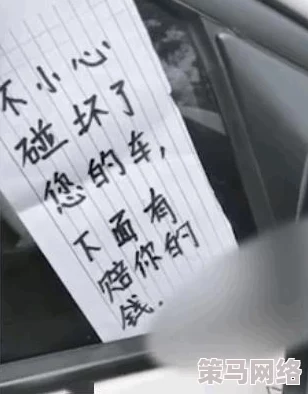 不小心
碰坏了
您的车,
下面有
赔你的
钱.
策马网络